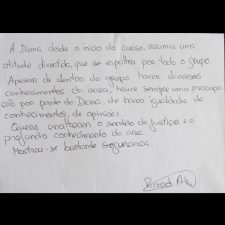 A Diana desde o início do curso, assumiu uma
atitude divertida, que se espalhou por todo o grupo.
Apesar de dentro do grupo haver diversos
conhecimentos da área, houve sempre uma preocupa-
ção por parte da Diana, de haver igualdade de
conhecimentos, de opiniões.
Quero enaltecer o sentido de justiça e o
profundo conhecimento da área.
Mostrou-se bastante segurança.